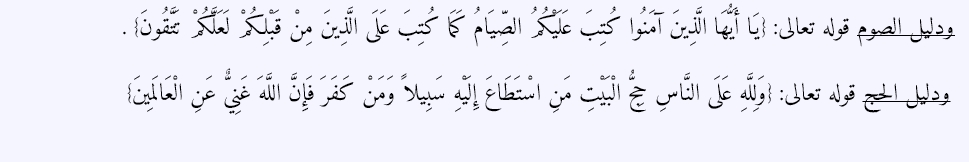 ودليل الصوم قوله تعالى: {يَا أَيُّهَا الَّذِينَ آمَنُوا كُتِبَ عَلَيْكُمُ الصِّيَامُ كَمَا كُتِبَ عَلَى الَّذِينَ مِنْ قَبْلِكُمْ لَعَلَّكُمْ تَتَّقُونَ} .
ودليل الحج قوله تعالى: {وَلِلَّهِ عَلَى النَّاسِ حِجُّ الْبَيْتِ مَنِ اسْتَطَاعَ إِلَيْهِ سَبِيلاً وَمَنْ كَفَرَ فَإِنَّ اللَّهَ غَنِيٌّ عَنِ الْعَالَمِينَ}